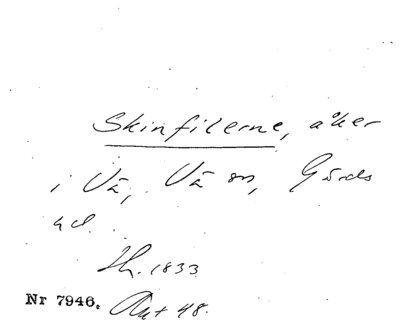 Skinfilerne, åker
i Vä, Vä sn, Gärds
hd.
Sk. 1833
Nr 7946. Akt 48.